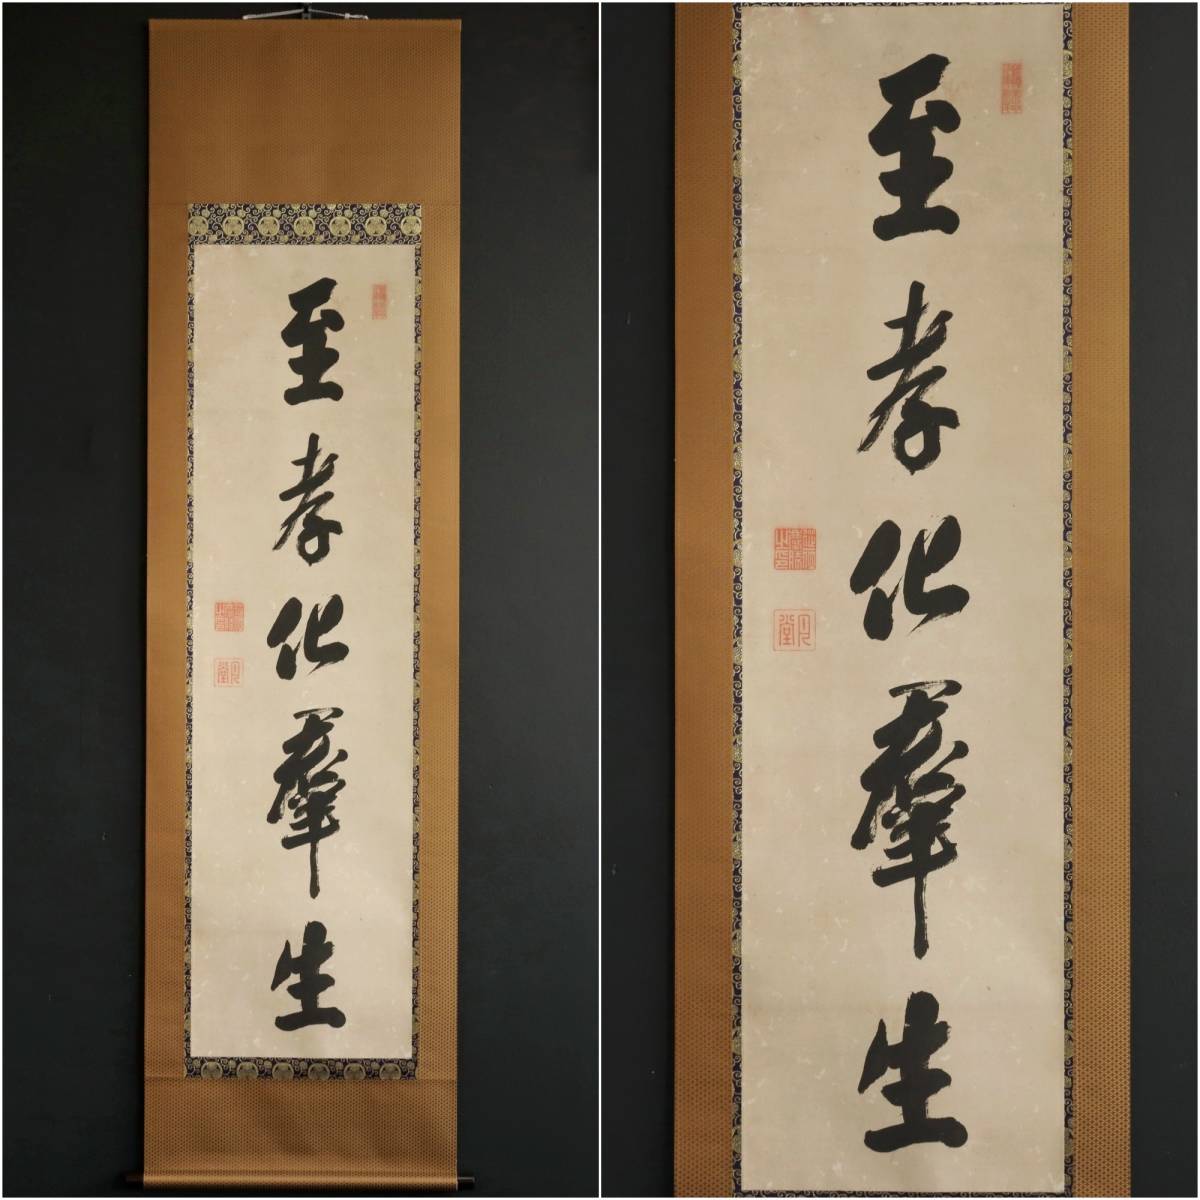 至孝化羣生
至孝化羣生